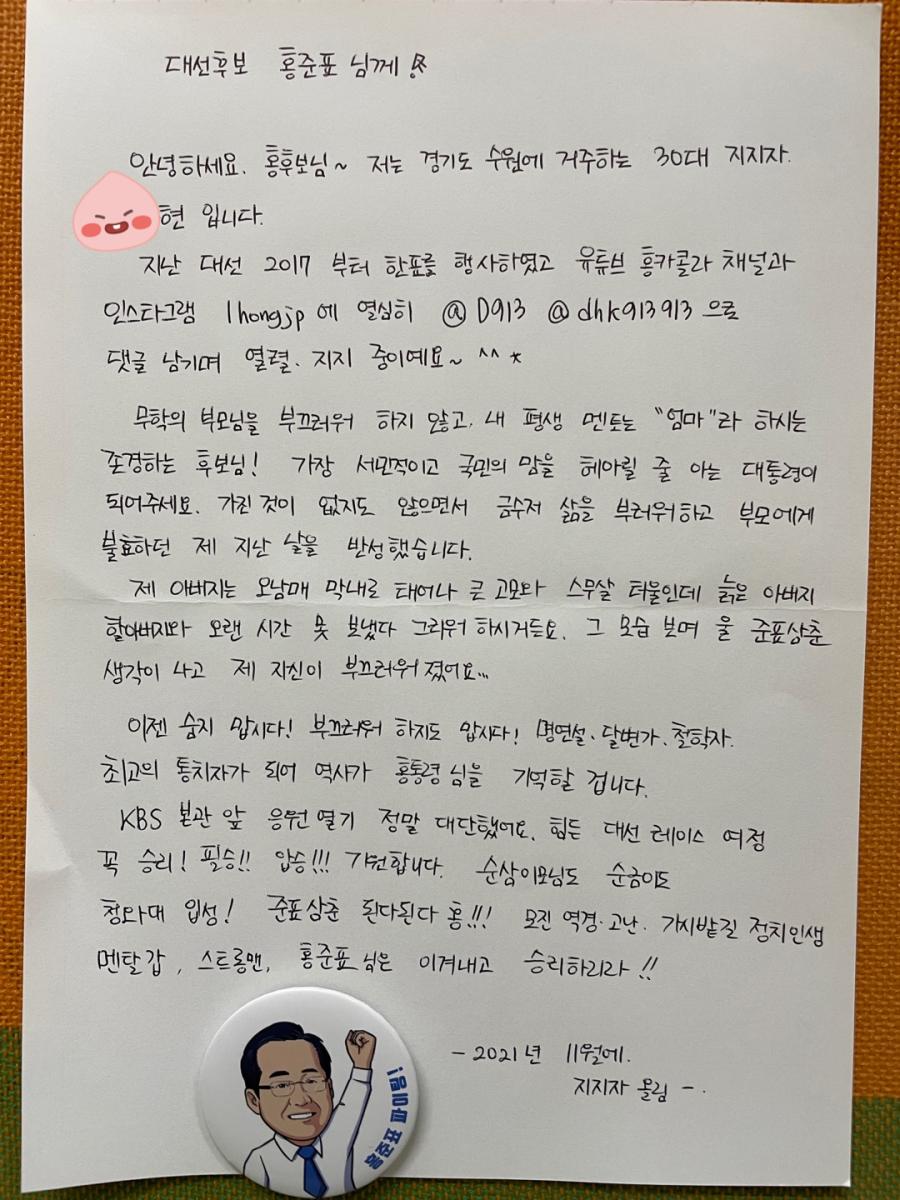 대선후보 홍준표 님께!
안녕하세요. 홍후보님~ 저는 경기도 수원에 거주하는 30대 지지자.
현 입니다.
지난 대선 2017 부터 한표를 행사하였고 유튜브 홍카콜라 채널과
인스타그램 1hongjp에 열심히 @D913 @dhk913913 으로
댓글 남기며 열렬. 지지 중이예요~ ^^ *
무학의 부모님을 부끄러워 하지 않고, 내 평생 멘토는 "엄마"라 하시는
존경하는 후보님! 가장 서민적이고 국민의 맘을 헤아릴 줄 아는 대통령이
되어주세요. 가진 것이 없지도 않으면서 금수저 삶을 부러워하고 부모에게
불효하던 제 지난 날을 반성했습니다.
제 아버지는 오남매 막내로 태어나 큰 고모와 스무살 터울인데 늙은 아버지
할아버지와 오랜 시간 못 보냈다 그리워 하시거든요. 그 모습 보며 울 준표상춘
생각이 나고 제 자신이 부끄러워졌어요...
이젠 숨지 맙시다! 부끄러워 하지도 맙시다! 명연설、달변가、철학자.
최고의 통치자가 되어 역사가 홍통령님을 기억할 겁니다.
KBS 본관 앞 응원 열기 정말 대단했어요. 힘든 대선 레이스 여정
꼭 승리! 필승!! 압승!!! 기원합니다. 순삼이모님도 순금이도
청와대 입성! 준표상춘 된다된다 홍!!! 모진 역경·고난. 가시밭길 정치인생
멘탈갑, 스트롱맨, 홍준표님은 이겨내고 승리하리라!!
- 2021년 11월에.
지지자 올림 -.
홍준표 파이팅!